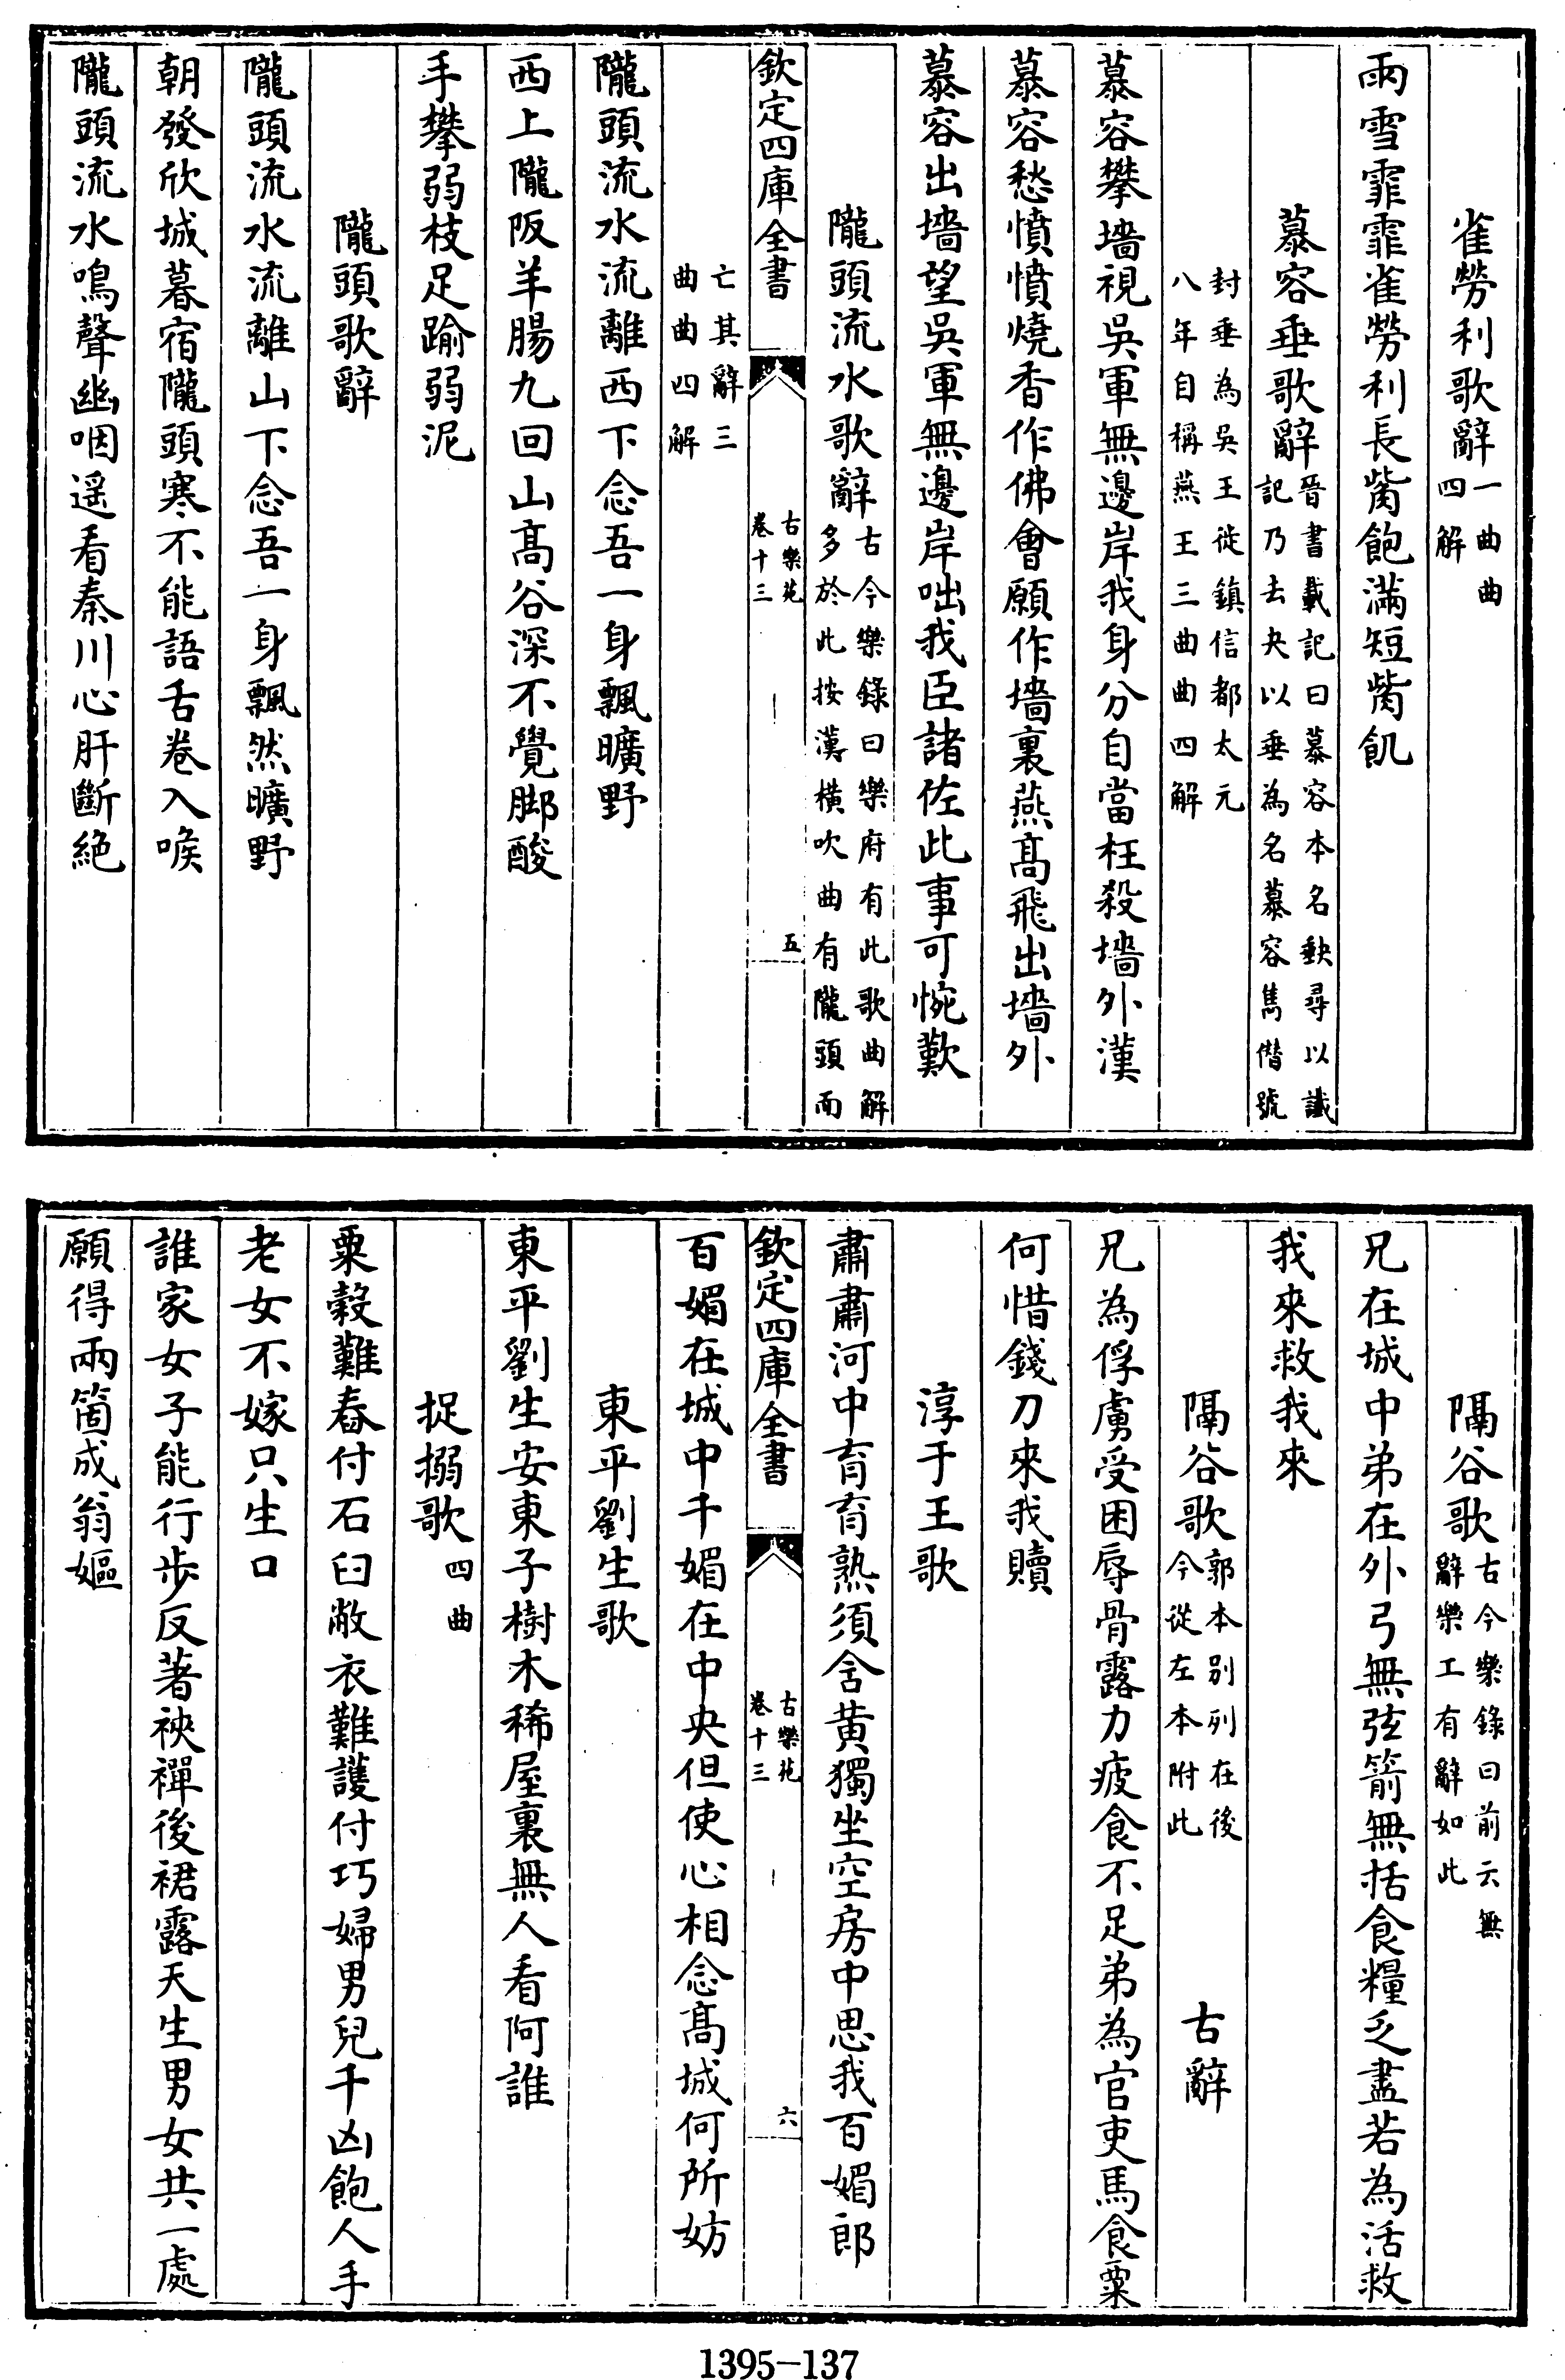 雀勞利歌辭一曲曲
四解
雨雪霏霏雀勞利長觜飽滿短觜飢
慕容垂歌辭晉書載記曰慕容本名𡙇尋以讖
記乃去夬以垂為名慕容雋僭號
封垂為吳王徙鎮信都太元
八年自稱燕王三曲曲四解
慕容攀墻視吳軍無邊岸我身分自當枉殺墻外漢
慕容愁憤憤燒香作佛會願作墻裏燕髙飛出墻外
慕容出墻望吳軍無邊岸咄我臣諸佐此事可惋歎
隴頭流水歌辭古今樂錄曰樂府有此歌曲解
多於此按漢橫吹曲有隴頭而
欽定四庫全書
古樂苑
卷十三
五
亡其辭三
曲曲四解
隴頭流水流離西下念吾一身飄曠野
西上隴阪羊腸九回山髙谷深不覺脚酸
手攀弱枝足踰弱泥
隴頭歌辭
隴頭流水流離山下念吾一身飄然曠野
朝發欣城暮宿隴頭寒不能語舌卷入喉
隴頭流水鳴聲幽咽遥看秦川心肝斷絶
隔谷歌古今樂錄曰前云無
辭樂工有辭如此
兄在城中弟在外弓無弦箭無括食糧乏盡若為活救
我來救我來
隔谷歌郭本別列在後
今從左本附此
古辭
兄為俘虜受困辱骨露力疲食不足弟為官吏馬食粟
何惜錢刀來我贖
淳于王歌
肅肅河中育育熟須含黄獨坐空房中思我百媚郎
欽定四庫全書
古樂苑
卷十三
六
百媚在城中千媚在中央但使心相念髙城何所妨
東平劉生歌
東平劉生安東子樹木稀屋裏無人看阿誰
捉搦歌四曲
粟穀難舂付石臼敝衣難護付巧婦男兒千凶飽人手
老女不嫁只生口
誰家女子能行步反著裌襌後裙露天生男女共一處
願得兩箇成翁嫗
1395-137